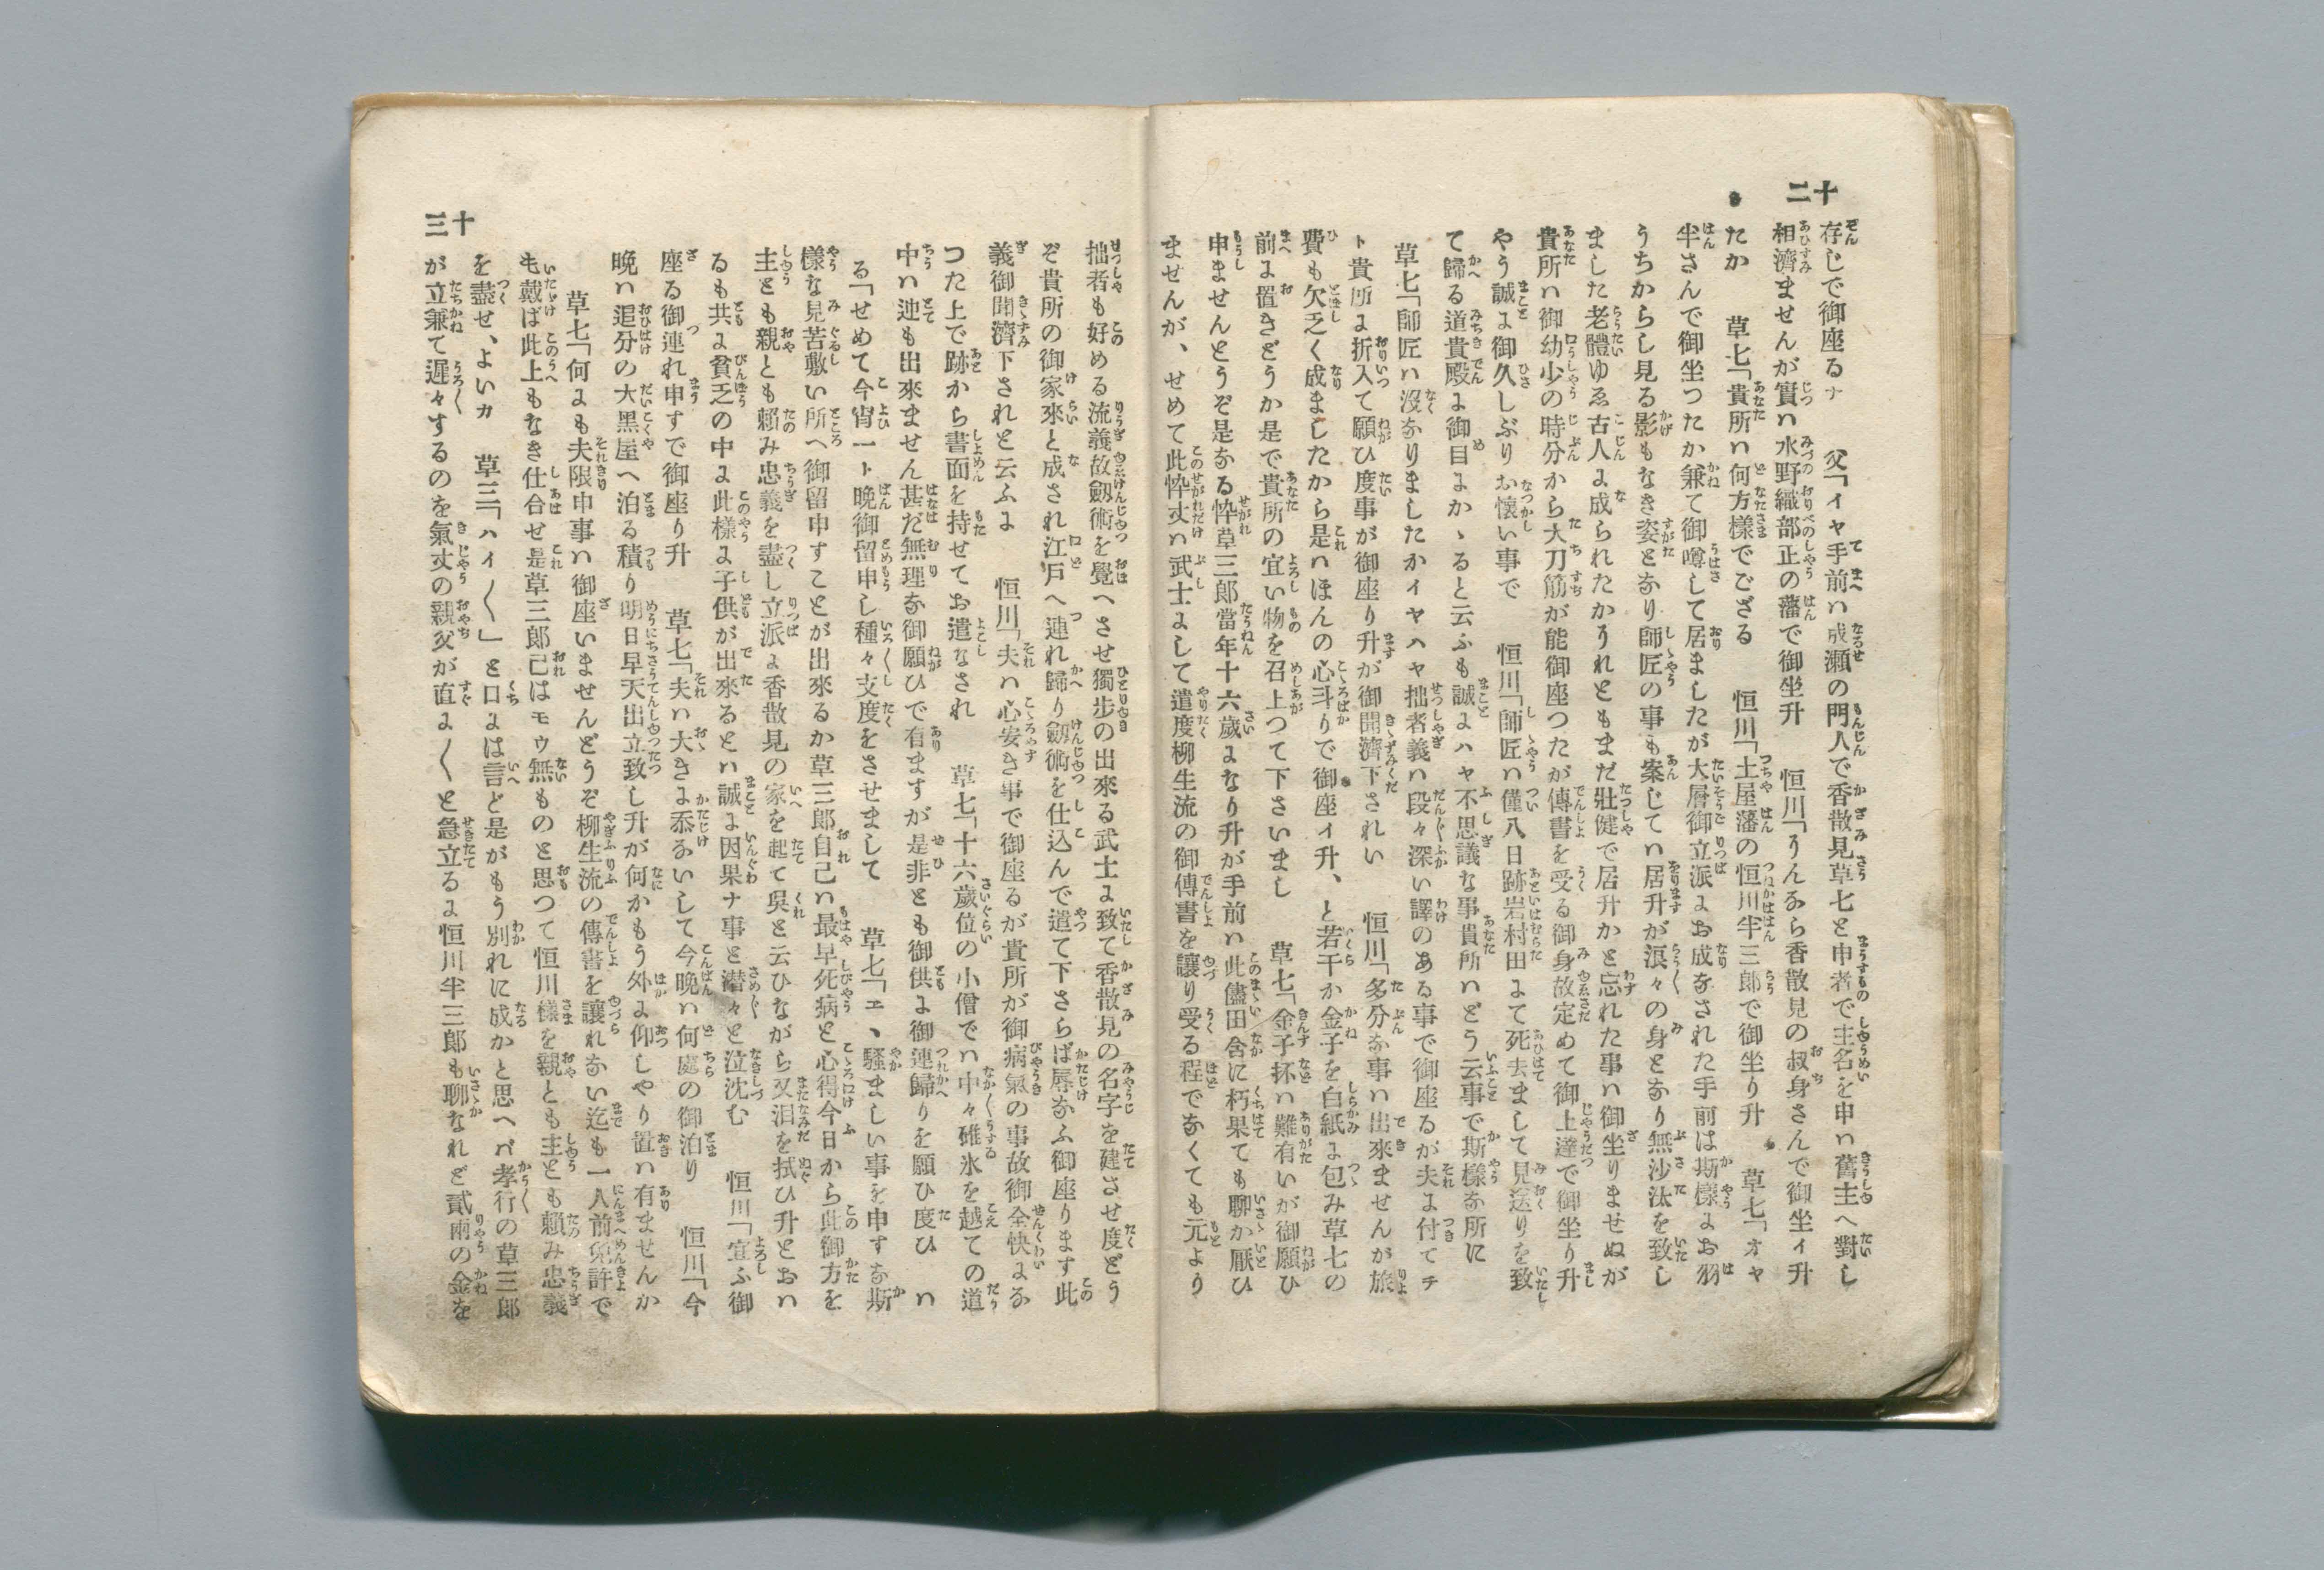 十二
存じで御座るナ　父「イヤ手前ハ成瀬の門人で香散見草七と申者で主名を申ハ舊主へ對し
相濟ませんが實ハ水野織部正の藩で御坐升　恒川「うんなら香散見の叔身さんで御坐ィ升
たか　草七「貴所ハ何方樣でござる　恒川「土屋藩の恒川半三郎で御坐り升　草七「オヤ
半さんで御坐つたか兼て御噂して居ましたが大層御立派にお成なされた手前は斯樣にお羽
うちからし見る影もなき姿となり師匠の事も案じてハ居升が浪々の身となり無沙汰を致し
ました老體ゆゑ古人に成られたかうれともまだ壯健で居升かと忘れた事ハ御坐りませぬが
貴所ハ御幼少の時分から大刀筋が能御座つたが傳書を受る御身故定めて御上達で御坐り升
やう誠に御久しぶりお懷い事で　恒川「師匠ハ僅八日跡岩村田にて死去まして見送りを致し
て歸る道貴殿に御目にかゝると云ふも誠にハヤ不思議な事貴所ハどう云事で斯樣な所に
草七「師匠ハ沒なりましたかイヤハヤ拙者義ハ段々深い譯のある事で御座るが夫に付てチ
ト貴所に折入て願ひ度事が御座り升が御聞濟下されい　恒川「多分な事ハ出來ませんが旅
費も欠乏く成ましたから是ハほんの心斗りで御座ィ升、と若干か金子を白紙に包み草七の
前に置きどうか是で貴所の宜い物を召上つて下さいまし　草七「金子抔ハ難有いが御願ひ
申ませんどうぞ是なる忰草三郎當年十六歲になり升が手前ハ此儘田舍に朽果ても聊か厭ひ
ませんが、せめて此忰丈ハ武士にして遣度柳生流の御傳書を讓り受る程でなくても元より
拙者も好める流義故劔術を覺へさせ獨步の出來る武士に致て香散見の名字を建させ度どう
ぞ貴所の御家來と成され江戸へ連れ歸り劔術を仕込んで遣て下さらば辱なふ御座ります此
義御聞濟下されと云ふに　恒川「夫ハ心安き事で御座るが貴所が御病氣の事故御全快にな
つた上で跡から書面を持せてお遣なされ　草七「十六歲位の小僧でハ中々碓氷を越ての道
中ハ迚も出來ません甚だ無理な御願ひで有ますが是非とも御供に御連歸りを願ひ度ひ　ハ
る「せめて今宵一ト晩御留申し種々支度をさせまして　草七「エヽ騷ましい事を申すな斯
樣な見苦敷い所へ御留申すことが出來るか草三郎自己ハ最早死病と心得今日から此御方を
主とも親とも賴み忠義を盡し立派に香散見の家を起て吳と云ひながら又泪を拭ひ升とおハ
るも共に貧乏の中に此樣に子供が出來るとハ誠に因果ナ事と潛々と泣沈む　恒川「宜ふ御
座る御連れ申すで御座り升　草七「夫ハ大きに忝ないして今晩ハ何處の御泊り　恒川「今
晩ハ追分の大黑屋へ泊る積り明日早天出立致し升が何かもう外に仰しやり置ハ有ませんか
草七「何にも夫限申事ハ御座いませんどうぞ柳生流の傳書を讓れない迄も一人前免許で
も戴ば此上もなき仕合せ是草三郎己はモゥ無ものと思つて恒川樣を親とも主とも賴み忠義
を盡せ、よいカ　草三「ハイ〱」と口には言ど是がもう別れに成かと思へバ孝行の草三郎
が立兼て遲々するのを氣丈の親父が直に〱と急立るに恒川半三郎も聊なれど貳兩の金を
十三